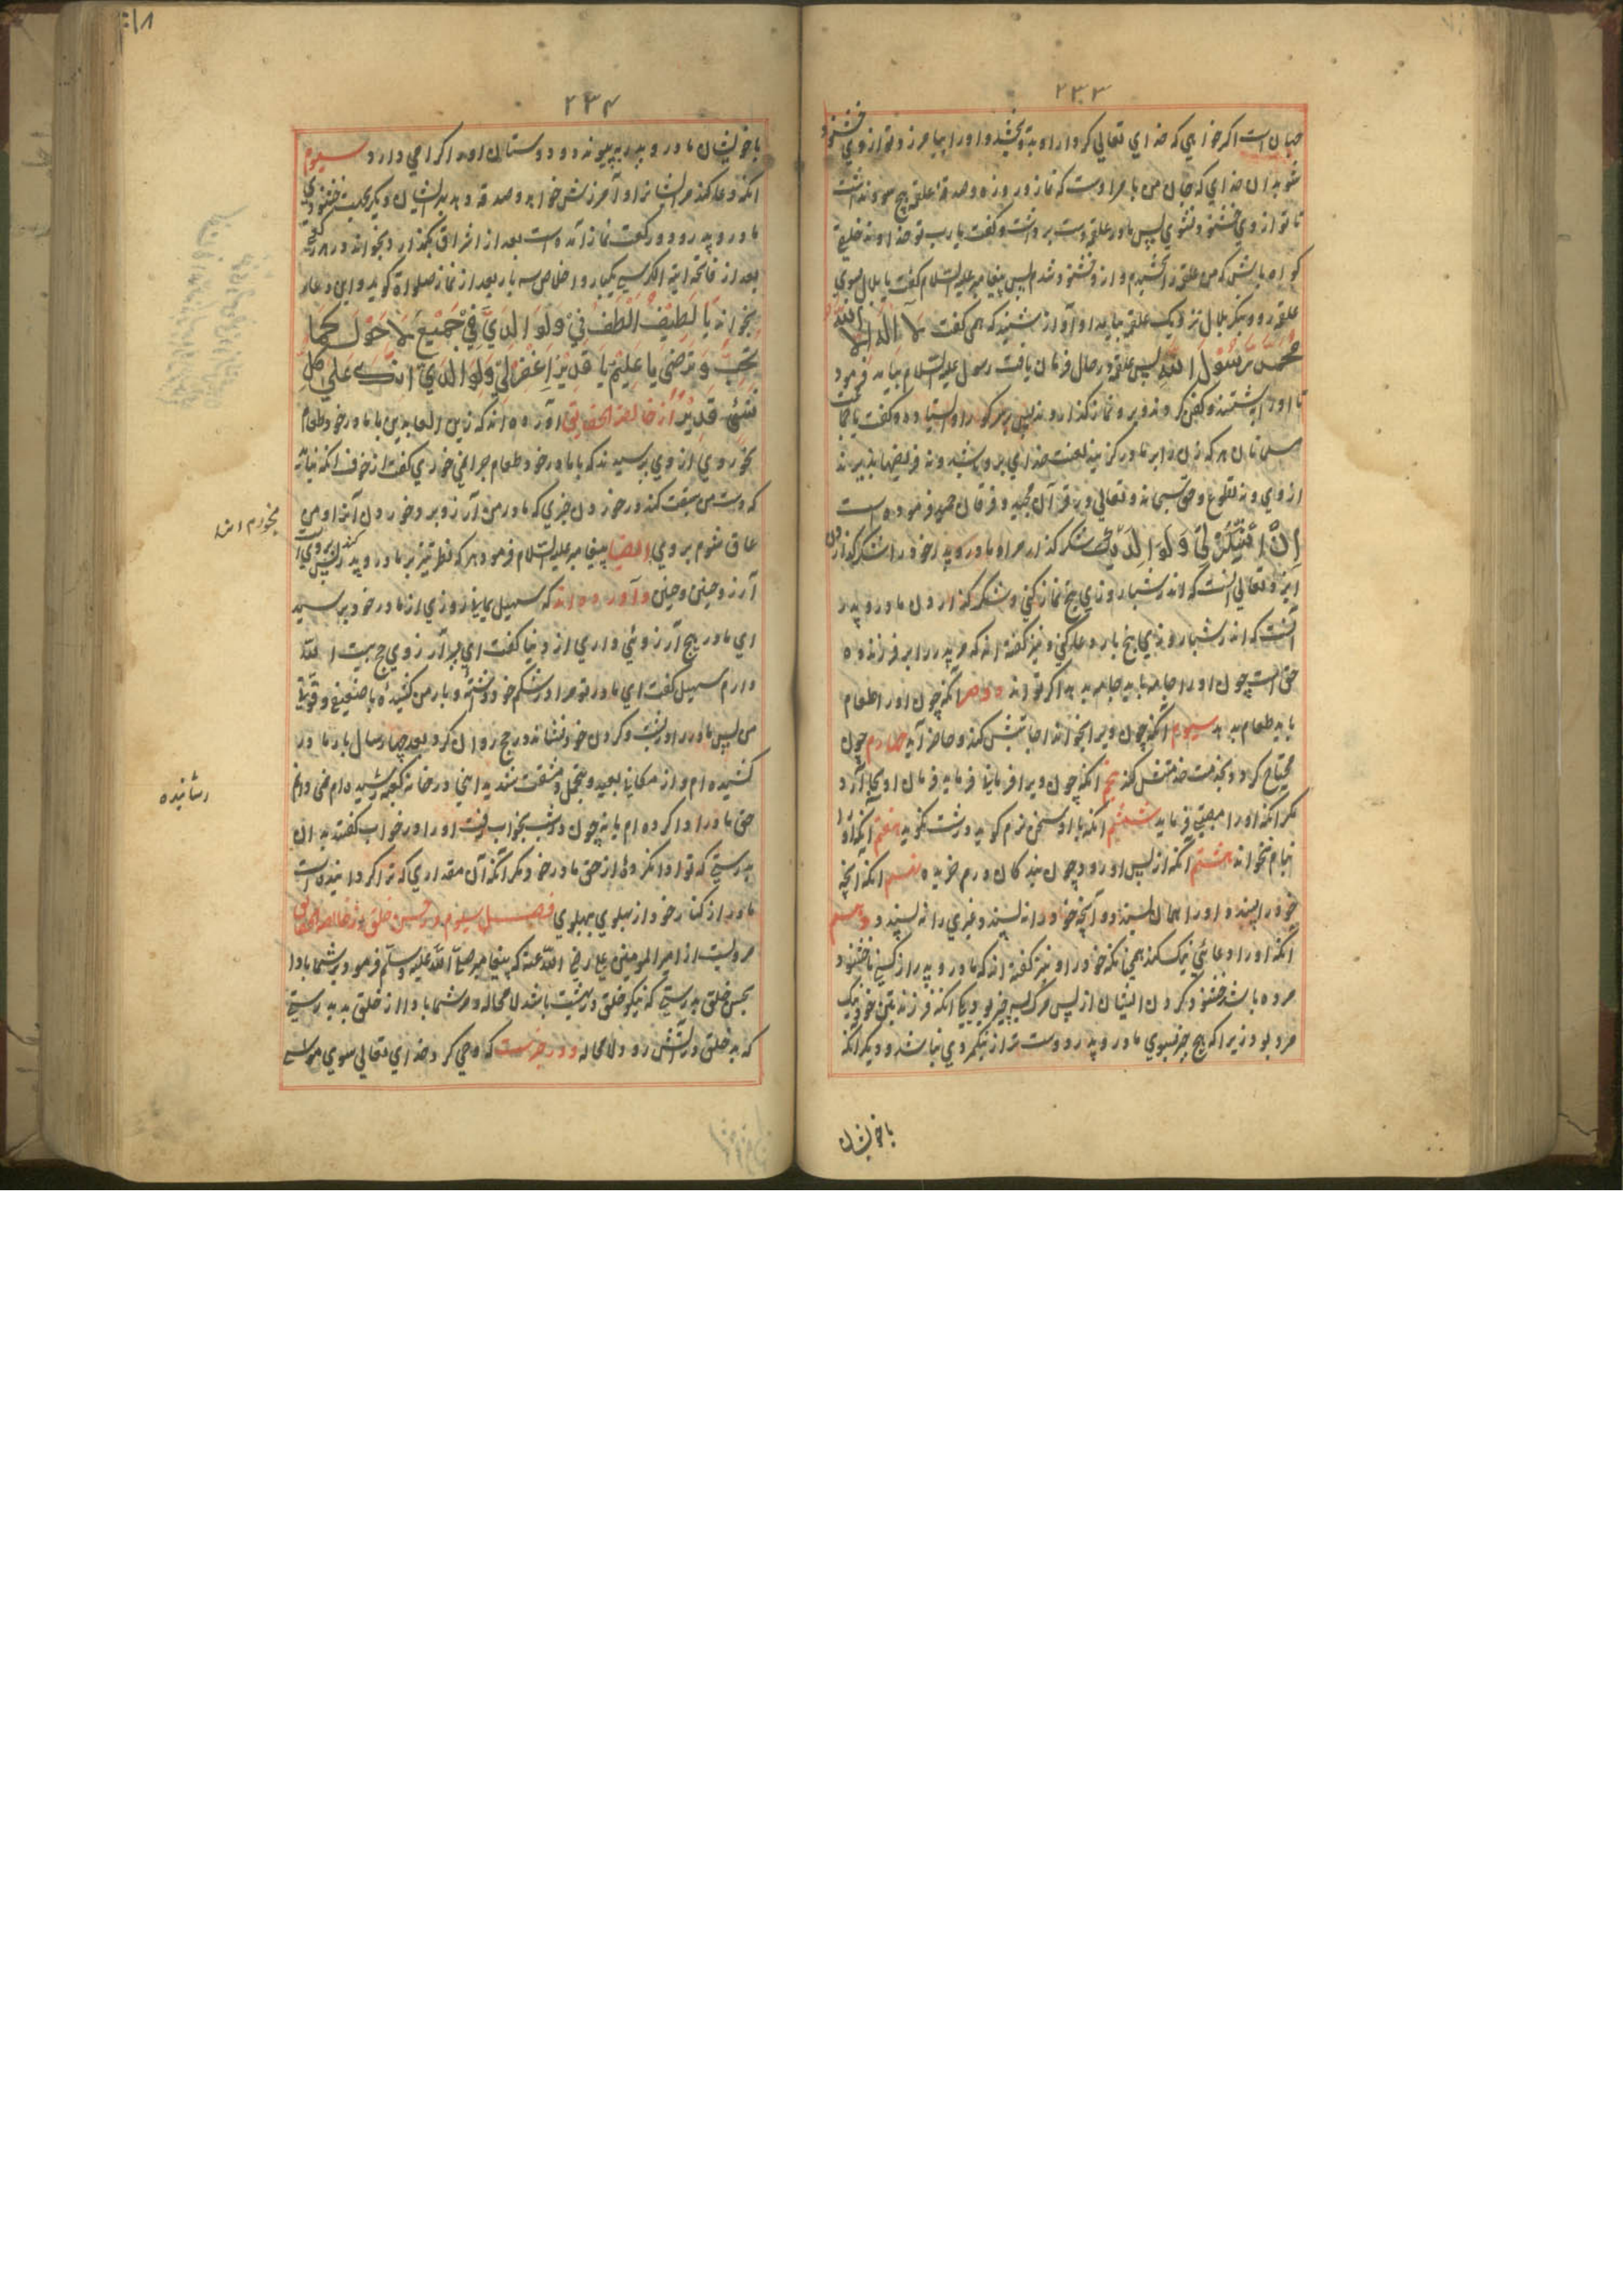 ۲۳۳
چنان است اگر خواهی که خدای تعالی کردار او بدو بخشد و او را بیامرزد تو از وی خشنود
شو بدان خدای که جان من بامر اوست که نماز و روزه و صدقهٔ علقمه هیچ سود نداشت
تا تو از وی خشنود نشوی پس مادر علقمه دست برداشت و گفت یا رب تو خداوند خلیفه
گواه باش که من علقمه را بخشیدم و از و خشنود شدم پس پیغامبر علیه السلام گفت یا بلال بسوی
علقمه رو و بنگر بلال نزدیک علقمه بیامد او آواز شنید که همی گفت لا اله الا الله
محمد رسول الله پس علقمه در حال فرمان یافت رسول علیه السلام بیامد فرمود
تا او را بشستند و کفن کردند و برو نماز گذاردند پس بر سر گور او ایستاده و گفت یا جماعت
مسلمانان هر که زن را بر مادر گزیند لعنت خدای برو باشد و نه فریضها پذیرند
از وی و نه تطوع و حق سبحانه و تعالی در قرآن مجید و فرقان حمید فرموده است
ان اشکر لی و لوالدیک شکر گذار مرا و مادر و پدر خود را شکر گذاردن
ایزد تعالی آنست که اندر شبان روزی پنج نماز کنی و شکر گذاردن مادر و پدر
آنست که اندر شبان روزی پنج بار دعا کنی و نیز گفته اند که مر پدر را بر فرزند ده
حق است چون او را جامه باید جامه بدهد اگر تواند دوم آنکه چون او را طعام
باید طعام بدهد سیوم آنکه چون ویرا بخواند اجابتش کند و حاضر آید چهارم چون
محتاج گردد بخدمت خدمتش کند پنجم آنکه چون ویرا فرمانی فرماید فرمان او بجا آرد
مگر آنکه او را معصیت فرماید ششم آنکه با او سخن نرم گوید درشت نگوید هفتم آنکه او را
بنام نخواند هشتم آنکه از پس او رود چون بندگان درم خریده نهم آنکه آنچه
خود را پسندد او را همان پسندد و آنچه خود را نه پسندد ویرا نه پسندد دهم
آنکه او را دعای نیک کند همچنانکه خود را و نیز گفته اند که مادر و پدر را از کسی ناخشنود
مرده باشد خشنود کردن ایشان از پس مرگ بسه چیز بود یکی آنکه فرزند بتن خود نیک
مرد بود زیرا که هیچ چیز بسوی مادر و پدر دوست تر از نیک مردی نباشد و دیگر آنکه
با خویشان
۲۳۴
با خویشان مادر و پدر بپیوندد و دوستان او را گرامی دارد سیوم
آنکه دعا کند مر ایشان را و آمرزش خواهد و صدقه دهد بدیشان دیگر بجهت خشنودی
مادر و پدر دو رکعت نماز آمده است بعد از اشراق بگذارد بخواند در هر رکعت
بعد از فاتحه آیة الکرسی یکبار و اخلاص سه بار بعد از نماز صلواة گوید و این دعا
بخواند یا لطیف الطف بی و لوالدی فی جمیع الاحوال کما
تحب و ترضی یا علیم یا قدیر اغفر لی و لوالدی انک علی کل
شئ قدیر از خالصة الحقایق آورده اند که زین العابدین با مادر خود طعام
نخوردی از وی پرسیدند که با مادر خود طعام چرا نمی خوری گفت از خوف آنکه نباید
که دست من سبقت کند در خوردن چیزی که مادر من آرزو برد خوردن آنرا و من
عاق شوم بروی ایضا پیغامبر علیه السلام فرمود هر که نظر تیز بر مادر و پدر
آرزو چنین و چنین و آورده اند که سهیل یمانی روزی از مادر خود پرسید
ای مادر هیچ آرزوئی داری از دنیا گفت ای پسر آرزوی حج بیت الله
دارم سهیل گفت ای مادر تو مرا در شکم خود داشتهٔ و بار من کشیدهٔ با ضعیفی و قوتی
من پس مادر را در پشت و گردن خود نشاند و حج روان کرد و بعد چهار سال باز مادر
کشیده ام و از مکانی بعید و تحمل و مشقت شدید اینی در خانه کعبه رسیده ام نمی دانم
حق مادر ادا کرده ام یا نه چون در شب بخواب رفت او را در خواب گفتند بدان
بدرستی که تو ادا نکردهٔ از حق مادر خود مگر آنکه آن مقداری که ترا گردانیده است
مادر از کنار خود از پهلوی بپهلوی فصل سیوم در حسن خلق در خالصة الحقایق
مرویست از امیر المومنین علی رضی الله عنه که پیغامبر صلی الله علیه وسلم فرمود بر شما بادا
بحسن خلق بدرستی که نیکو خلق در بهشت باشد لا محاله و مر شما بادا از خلق بد بدرستی
که بد خلق در آتش رود لا محاله و در خبر است که وحی کرد خدای تعالی سوی موسی
نخورم انرا
رسانیده